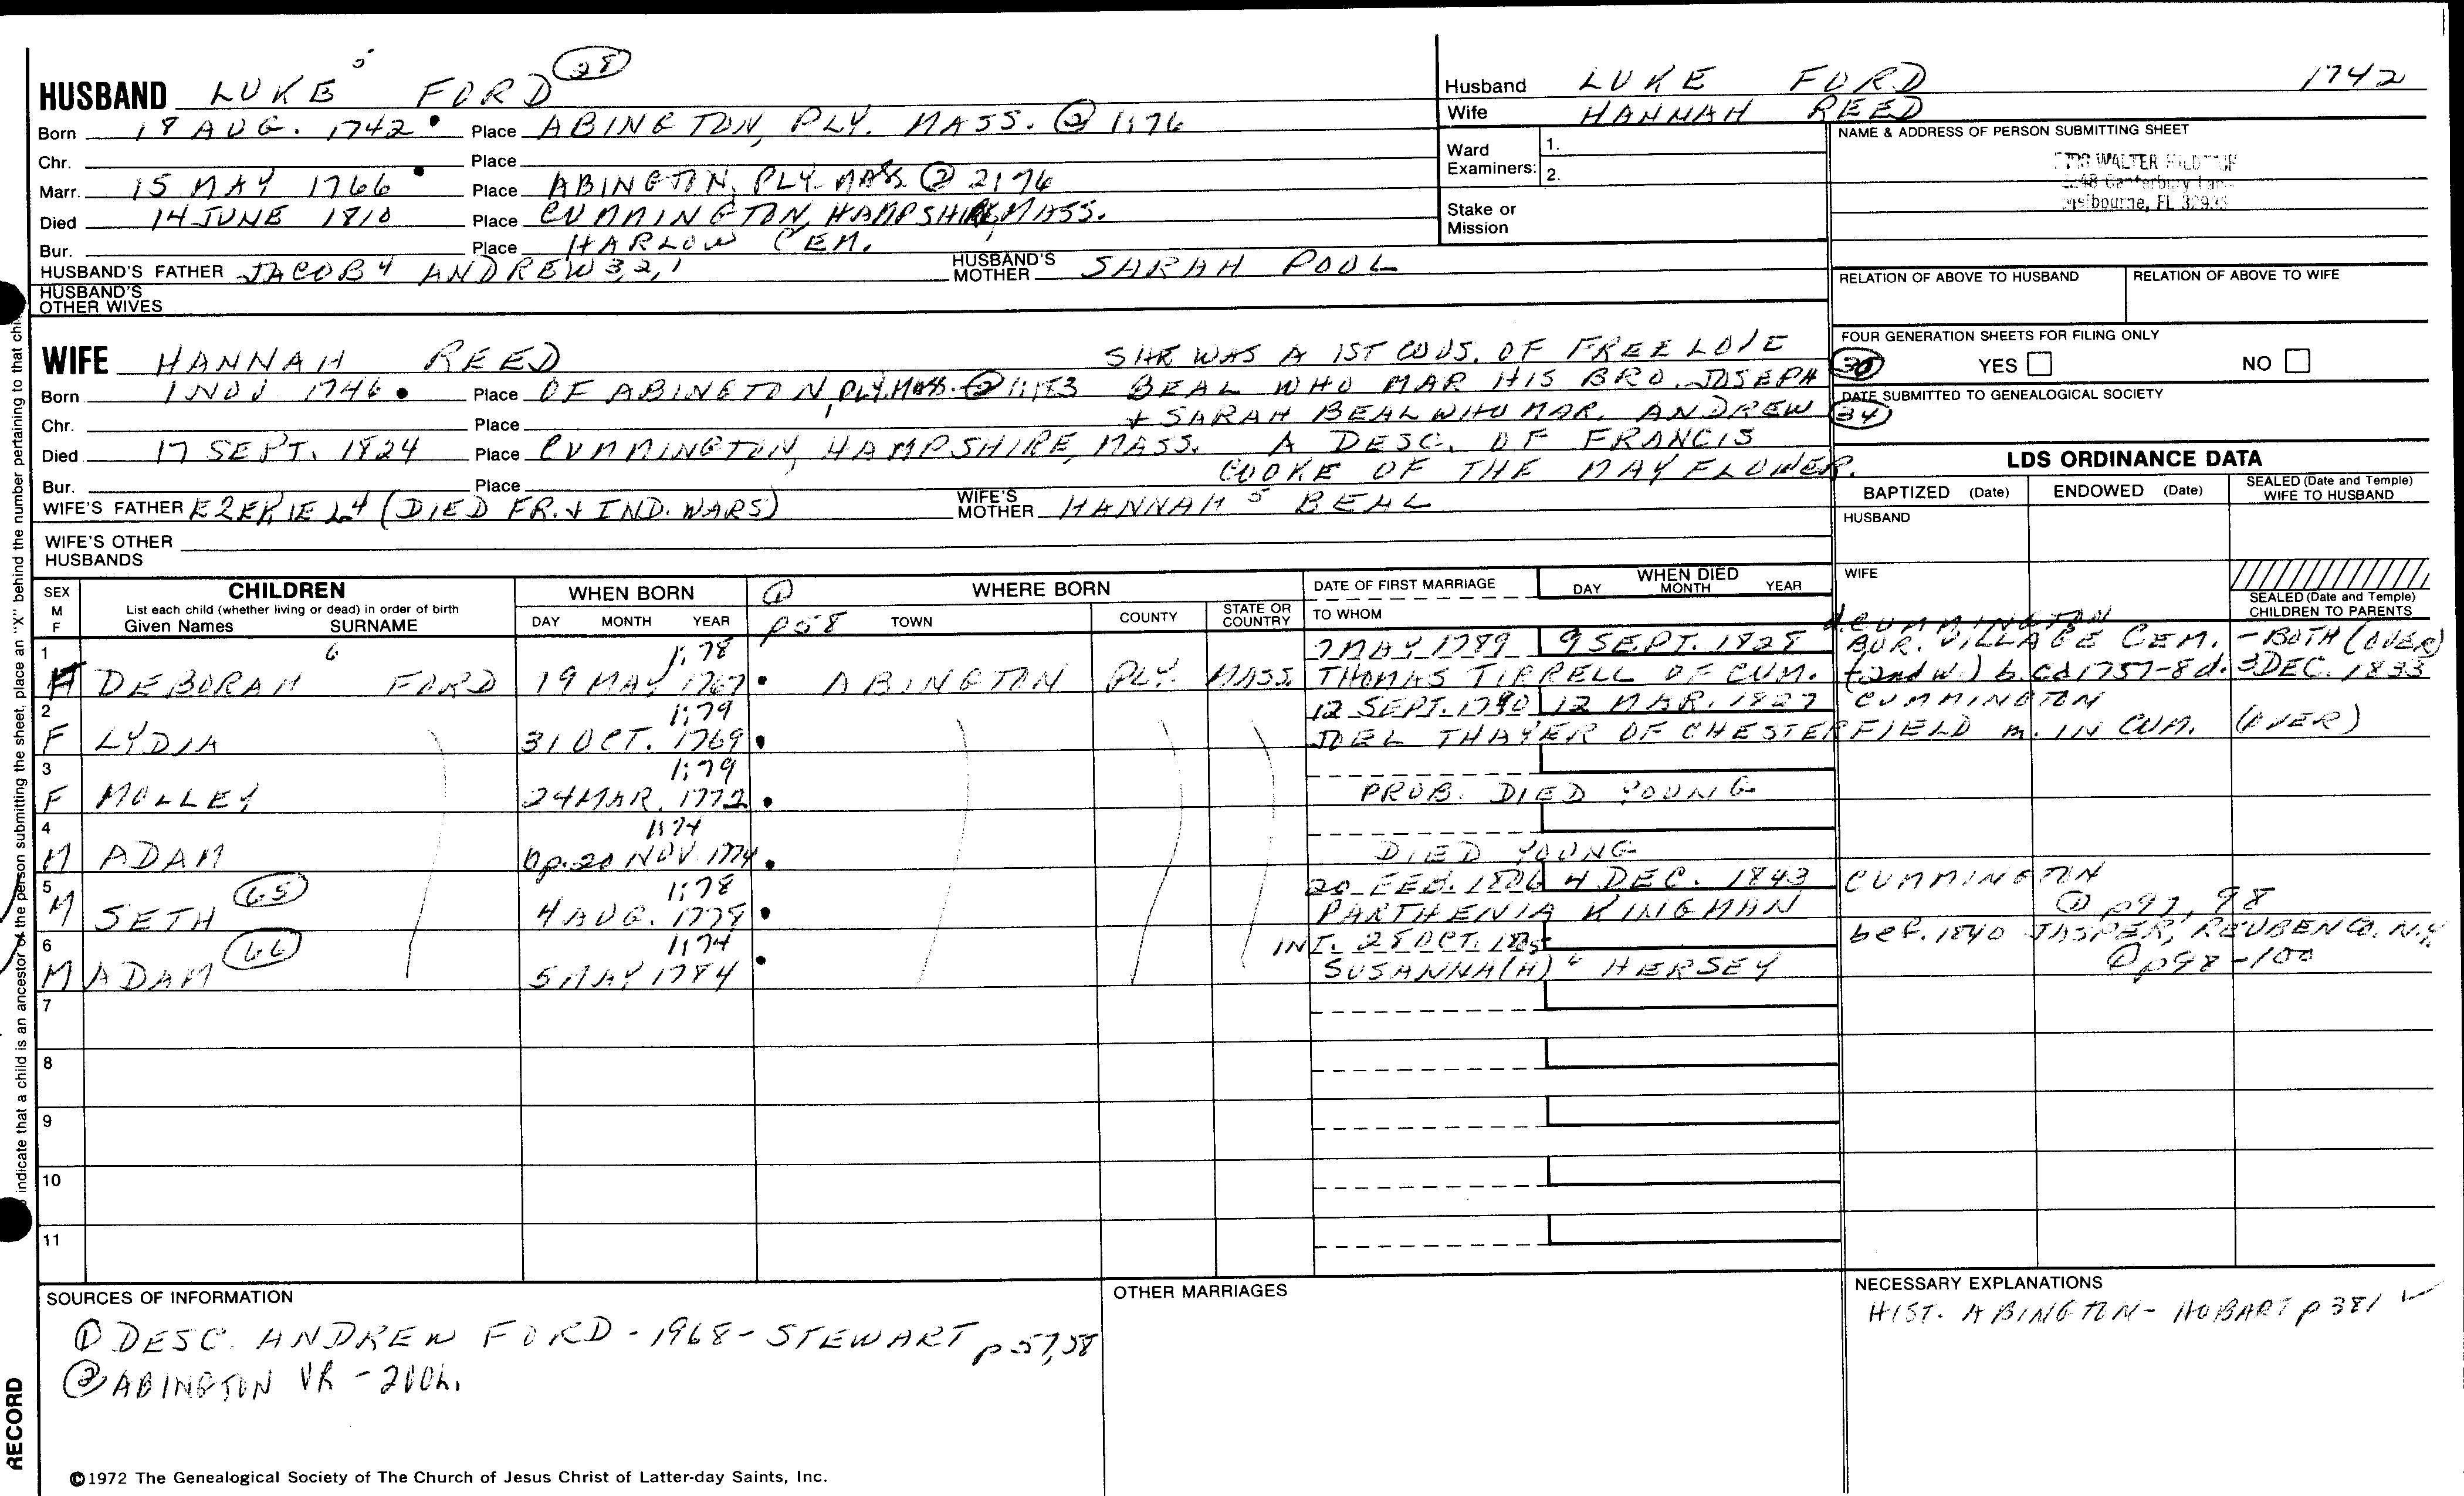 HUSBAND LUKE 5 FORD 28
Born 18 AUG. 1742 Place ABINGTON, PLY. MASS. ② 1:76
Chr. Place
Marr. 15 MAY 1766 Place ABINGTON, PLY. MASS. ② 2:76
Died 14 JUNE 1810 Place CUMMINGTON, HAMPSHIRE, MASS.
Bur. Place HARLOW CEM.
HUSBAND'S FATHER JACOB 4 ANDREW 3,2,1 HUSBAND'S MOTHER SARAH POOL
HUSBAND'S OTHER WIVES
Husband LUKE FORD 1742
Wife HANNAH REED
Ward Examiners: 1.
2.
Stake or Mission
NAME & ADDRESS OF PERSON SUBMITTING SHEET
WALTER
Canterbury
Melbourne, FL
RELATION OF ABOVE TO HUSBAND RELATION OF ABOVE TO WIFE
FOUR GENERATION SHEETS FOR FILING ONLY
YES NO
DATE SUBMITTED TO GENEALOGICAL SOCIETY
WIFE HANNAH REED
Born 1 NOV 1746 Place OF ABINGTON, PLY. MASS. ②
Chr. Place
Died 17 SEPT. 1824 Place CUMMINGTON, HAMPSHIRE, MASS.
Bur. Place
SHE WAS A 1ST COUS. OF FREELOVE
BEAL WHO MAR HIS BRO. JOSEPH 30
+ SARAH BEAL WHO MAR. ANDREW 34
A DESC. OF FRANCIS
COOKE OF THE MAYFLOWER.
WIFE'S FATHER EZEKIEL 4 (DIED FR. + IND. WARS) WIFE'S MOTHER HANNAH 5 BEAL
WIFE'S OTHER HUSBANDS
LDS ORDINANCE DATA
BAPTIZED (Date) ENDOWED (Date) SEALED (Date and Temple) WIFE TO HUSBAND
HUSBAND
WIFE
SEALED (Date and Temple) CHILDREN TO PARENTS
SEX M F
CHILDREN
List each child (whether living or dead) in order of birth
Given Names SURNAME
WHEN BORN
DAY MONTH YEAR
① p58
WHERE BORN
TOWN COUNTY STATE OR COUNTRY
DATE OF FIRST MARRIAGE
TO WHOM
WHEN DIED
DAY MONTH YEAR
1 6 1:78 7 MAY 1789 9 SEPT. 1828 d. CUMMINGTON BUR. VILLAGE CEM. - BOTH (OVER)
F DEBORAH FORD 19 MAY 1767 ABINGTON PLY. MASS. THOMAS TIRRELL OF CUM. (2nd w.) b. ca 1757-8 d. 3 DEC. 1833
2 1:79 12 SEPT. 1790 12 MAR. 1827 CUMMINGTON
F LYDIA 31 OCT. 1769 JOEL THAYER OF CHESTERFIELD m. IN CUM. (OVER)
3 1:79
F MOLLEY 24 MAR. 1772 PROB. DIED YOUNG
4 1:74
M ADAM bp. 20 NOV. 1774 DIED YOUNG
5 65 1:78 20 FEB. 1806 4 DEC. 1843 CUMMINGTON
M SETH 4 AUG. 1778 PARTHENIA KINGMAN ① p97, 98
6 66 1:74 INT. 28 OCT. 1805 bef. 1840 JASPER, REUBEN CO. N.Y.
M ADAM 5 MAY 1784 SUSANNA(H) 6 HERSEY ① p98-100
7
8
9
10
11
SOURCES OF INFORMATION
① DESC. ANDREW FORD - 1968 - STEWART p 57,58
② ABINGTON VR - 2 VOL.
OTHER MARRIAGES
NECESSARY EXPLANATIONS
HIST. ABINGTON - HOBART p 381 ✓
©1972 The Genealogical Society of The Church of Jesus Christ of Latter-day Saints, Inc.
indicate that a child is an ancestor of the person submitting the sheet, place an "X" behind the number pertaining to that
RECORD